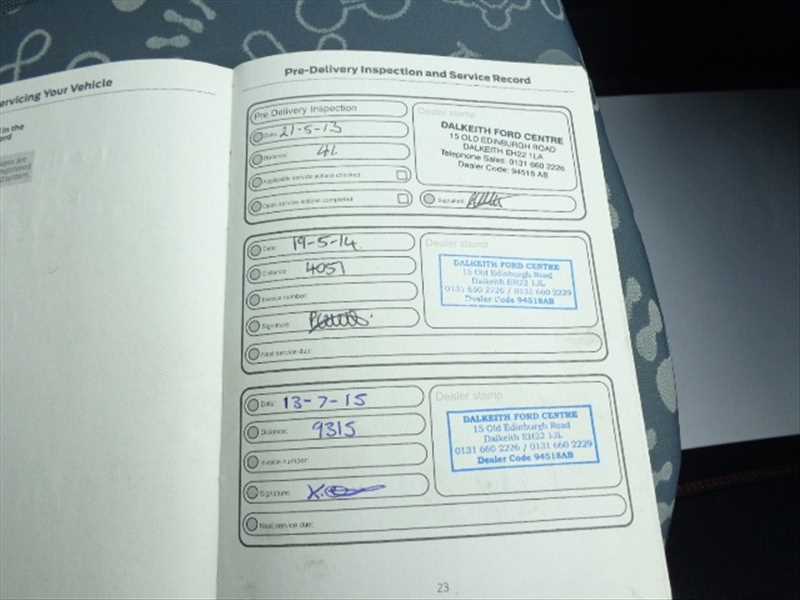 ervicing Your Vehicle
d in the
ord
Pre-Delivery Inspection and Service Record
Pre Delivery Inspection
Date: 21-5-13
Distance: 41
Applicable service actions checked
Open service actions completed
Dealer stamp
DALKEITH FORD CENTRE
15 OLD EDINBURGH ROAD
DALKEITH EH22 1LA
Telephone Sales: 0131 660 2226
Dealer Code: 94518 AB
Signature:
Date: 19-5-14
Distance: 4051
Invoice number:
Signature:
Next service due:
Dealer stamp
DALKEITH FORD CENTRE
15 Old Edinburgh Road
Dalkeith EH22 1JL
0131 660 2226 / 0131 660 2229
Dealer Code 94518AB
Date: 13-7-15
Distance: 9315
Invoice number:
Signature:
Next service due:
Dealer stamp
DALKEITH FORD CENTRE
15 Old Edinburgh Road
Dalkeith EH22 1JL
0131 660 2226 / 0131 660 2229
Dealer Code 94518AB
23